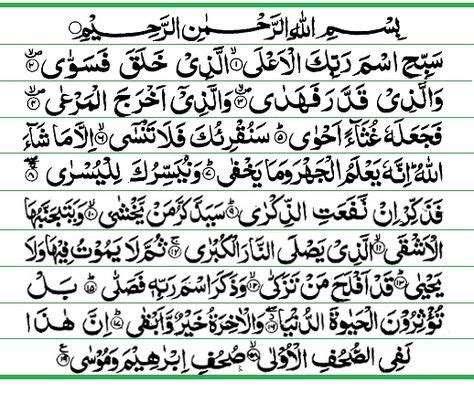 بِسْمِ اللهِ الرَّحْمٰنِ الرَّحِيْمِ
سَبِّحِ اسْمَ رَبِّكَ الْاَعْلَى ۱ الَّذِيْ خَلَقَ فَسَوّٰى ۲
وَالَّذِيْ قَدَّرَ فَهَدٰى ۳ وَالَّذِيْٓ اَخْرَجَ الْمَرْعٰى ۴
فَجَعَلَهٗ غُثَآءً اَحْوٰى ۵ سَنُقْرِئُكَ فَلَا تَنْسٰٓى ۶ اِلَّا مَا شَآءَ
اللهُ اِنَّهٗ يَعْلَمُ الْجَهْرَ وَمَا يَخْفٰى ۷ وَنُيَسِّرُكَ لِلْيُسْرٰى ۸
فَذَكِّرْ اِنْ نَّفَعَتِ الذِّكْرٰى ۹ سَيَذَّكَّرُ مَنْ يَّخْشٰى ۱۰ وَيَتَجَنَّبُهَا
الْاَشْقَى ۱۱ الَّذِيْ يَصْلَى النَّارَ الْكُبْرٰى ۱۲ ثُمَّ لَا يَمُوْتُ فِيْهَا وَلَا
يَحْيٰى ۱۳ قَدْ اَفْلَحَ مَنْ تَزَكّٰى ۱۴ وَذَكَرَ اسْمَ رَبِّهٖ فَصَلّٰى ۱۵ بَلْ
تُؤْثِرُوْنَ الْحَيٰوةَ الدُّنْيَا ۱۶ وَالْاٰخِرَةُ خَيْرٌ وَّاَبْقٰى ۱۷ اِنَّ هٰذَا
لَفِي الصُّحُفِ الْاُوْلٰى ۱۸ صُحُفِ اِبْرٰهِيْمَ وَمُوْسٰى ۱۹